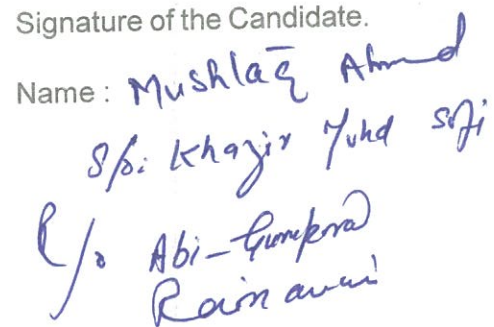 Signature of the Candidate.
Name : Mushlaq Ahmd
S/o: Khazir Muhd Sofi
R/o Abi-Gurupora
Rainawari